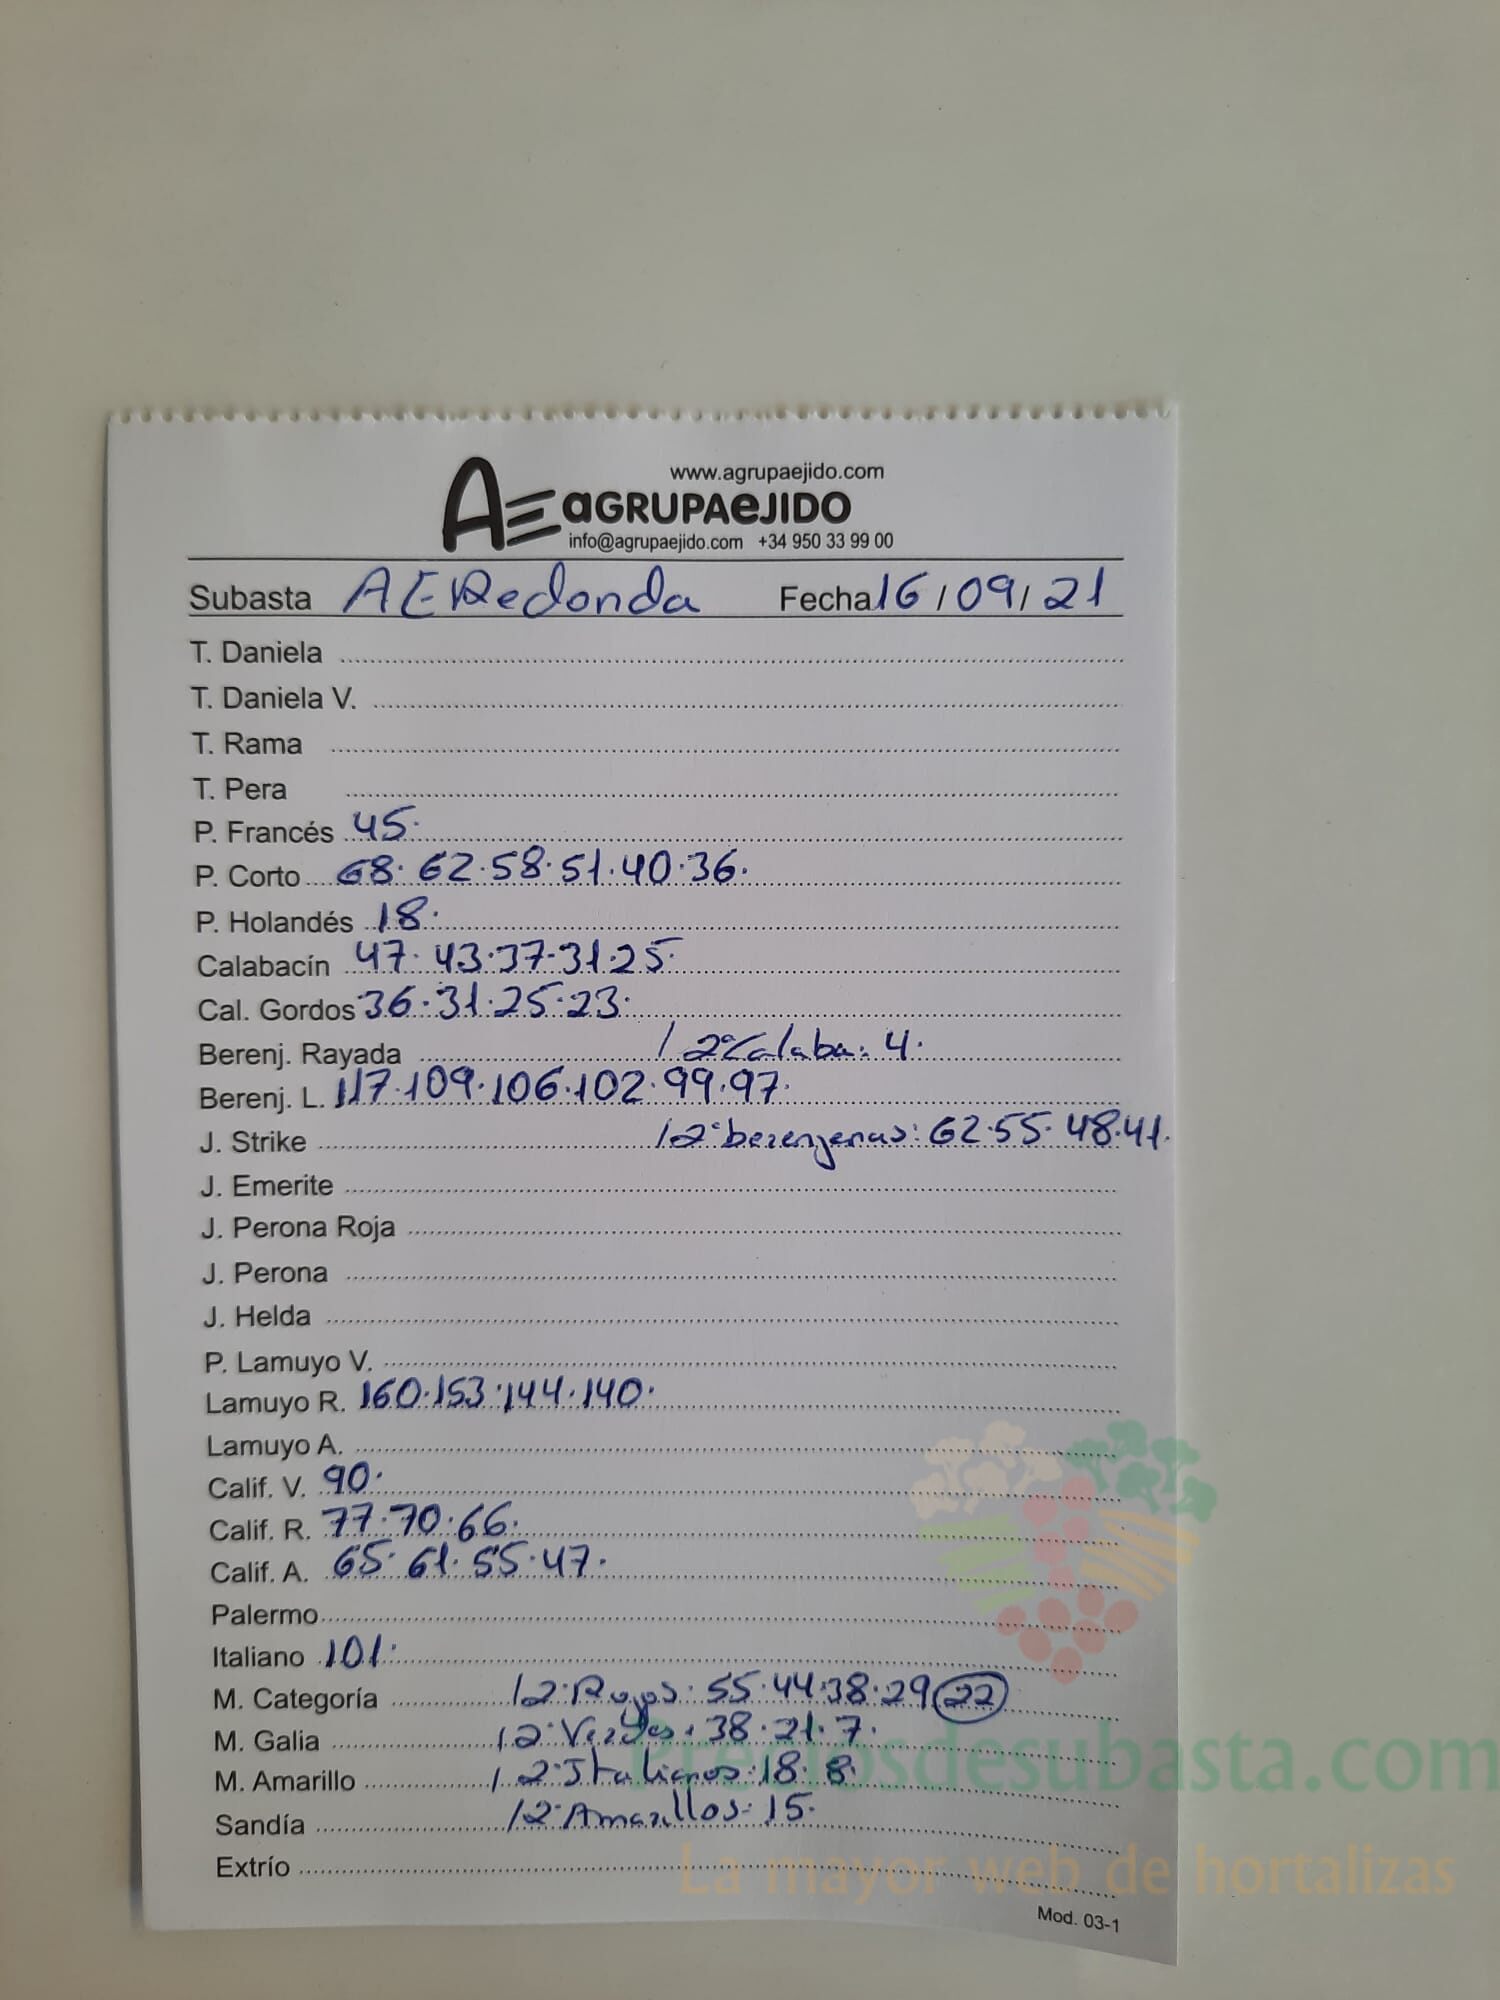 www.agrupaejido.com
AE aGRUPAeJIDO
info@agrupaejido.com +34 950 33 99 00
Subasta AE Redonda Fecha 16/09/21
T. Daniela
T. Daniela V.
T. Rama
T. Pera
P. Francés 45.
P. Corto 68. 62.58.51.40.36.
P. Holandés 18.
Calabacín 47. 43.37.31.25.
Cal. Gordos 36.31.25.23.
Berenj. Rayada / 2ª Calaba: 4.
Berenj. L. 117.109.106.102.99.97.
J. Strike / 2ª berenjenas: 62.55.48.41.
J. Emerite
J. Perona Roja
J. Perona
J. Helda
P. Lamuyo V.
Lamuyo R. 160.153.144.140.
Lamuyo A.
Calif. V. 90.
Calif. R. 77.70.66.
Calif. A. 65. 61. 55.47.
Palermo
Italiano 101.
M. Categoría / 2ª Rojos: 55.44.38.29 22
M. Galia / 2ª Verdes: 38.21.7.
M. Amarillo / 2ª Italianos: 18. 8.
Sandía / 2ª Amarillos: 15.
Extrío
Mod. 03-1
Preciosdesubasta.com
La mayor web de hortalizas